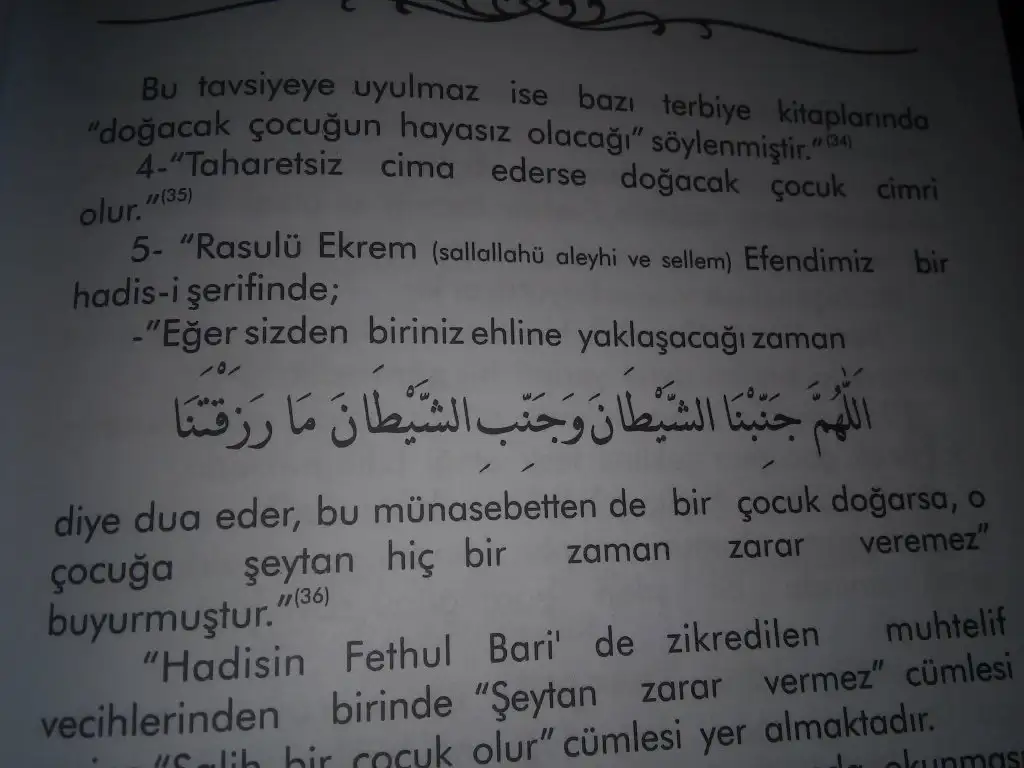 Bu tavsiyeye uyulmaz ise bazı terbiye kitaplarında
"doğacak çocuğun hayasız olacağı" söylenmiştir."(34)
4-"Taharetsiz cima ederse doğacak çocuk cimri
olur."(35)
5- "Rasulü Ekrem (sallallahü aleyhi ve sellem) Efendimiz bir
hadis-i şerifinde;
-"Eğer sizden biriniz ehline yaklaşacağı zaman
اَللّٰهُمَّ جَنِّبْنَا الشَّيْطَانَ وَجَنِّبِ الشَّيْطَانَ مَا رَزَقْتَنَا
diye dua eder, bu münasebetten de bir çocuk doğarsa, o
çocuğa şeytan hiç bir zaman zarar veremez"
buyurmuştur."(36)
"Hadisin Fethul Bari' de zikredilen muhtelif
vecihlerinden birinde "Şeytan zarar vermez" cümlesi
"Salih bir çocuk olur" cümlesi yer almaktadır.
okunması